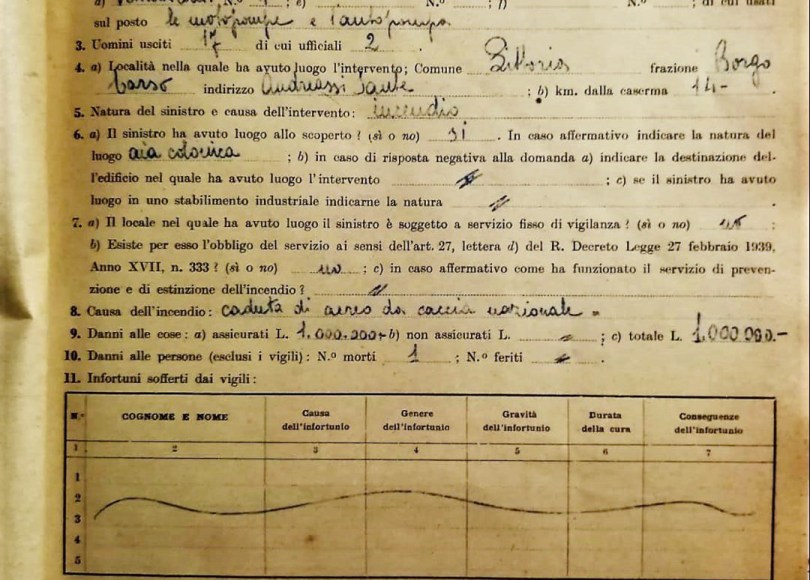 N.º ; e) N.º ; f) N.º ; di cui usati
sul posto le motopompe e l'autopompa
3. Uomini usciti 17 di cui ufficiali 2 .
4. a) Località nella quale ha avuto luogo l'intervento; Comune Littoria frazione Borgo
Carso indirizzo ; b) km. dalla caserma 14- .
5. Natura del sinistro e causa dell'intervento: incendio
6. a) Il sinistro ha avuto luogo allo scoperto? (sì o no) SI . In caso affermativo indicare la natura del
luogo aia colonica ; b) in caso di risposta negativa alla domanda a) indicare la destinazione del-
l'edificio nel quale ha avuto luogo l'intervento ; c) se il sinistro ha avuto
luogo in uno stabilimento industriale indicarne la natura
7. a) Il locale nel quale ha avuto luogo il sinistro è soggetto a servizio fisso di vigilanza? (sì o no) no ;
b) Esiste per esso l'obbligo del servizio ai sensi dell'art. 27, lettera d) del R. Decreto Legge 27 febbraio 1939,
Anno XVII, n. 333? (sì o no) no ; c) in caso affermativo come ha funzionato il servizio di preven-
zione e di estinzione dell'incendio?
8. Causa dell'incendio: caduta di aereo da caccia nazionale =
9. Danni alle cose: a) assicurati L. 1.000.000- b) non assicurati L. ; c) totale L. 1.000.000.-
10. Danni alle persone (esclusi i vigili): N.º morti 1 ; N.º feriti .
11. Infortuni sofferti dai vigili:
N.º COGNOME E NOME Causa dell'infortunio Genere dell'infortunio Gravità dell'infortunio Durata della cura Conseguenze dell'infortunio
1 2 3 4 5 6 7
1
2
3
4
5